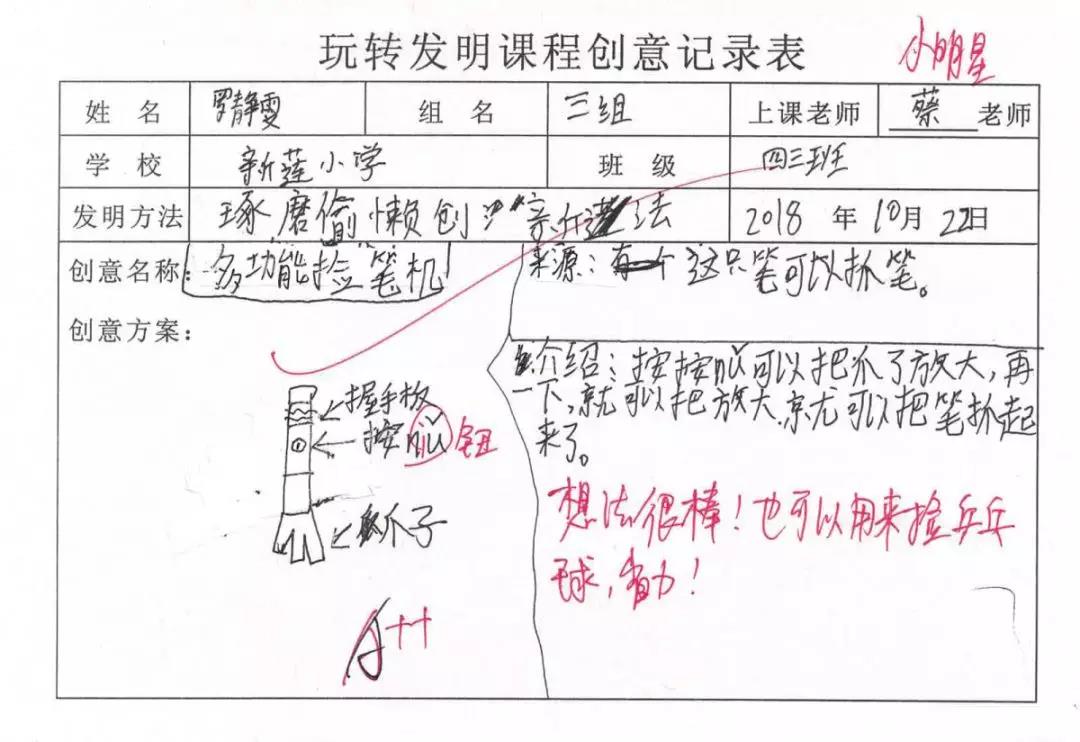 玩转发明课程创意记录表
小明星
姓 名 罗静雯 组 名 三组 上课老师 蔡 老师
学 校 新莲小学 班 级 四三班
发明方法 琢磨偷懒创 法 2018 年 10月 22日
创意名称: 多功能捡笔机
来源:这只笔可以抓笔。
创意方案:
握手板
按niǔ 钮
爪子
介绍:按按niǔ可以把爪了放大,再
一下,就可以把放大,就可以把笔抓起
来了。
想法很棒!也可以用来捡乒乓
球,省力!
A++